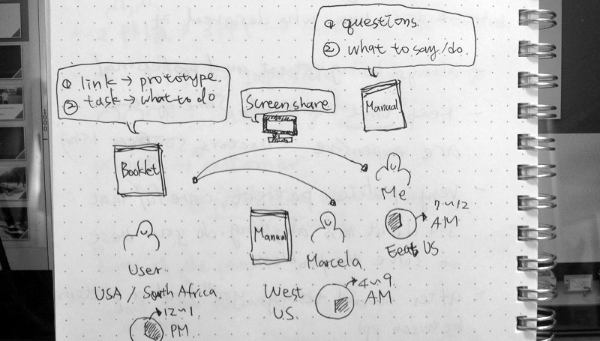 ① questions.
② what to say/do.
① link → prototype.
② task → what to do
Screenshare
Manual
Booklet
Me
7~12
AM
East US
Manual
Marcela.
West
US.
4~9
AM
User
USA / South Africa.
12~1
PM